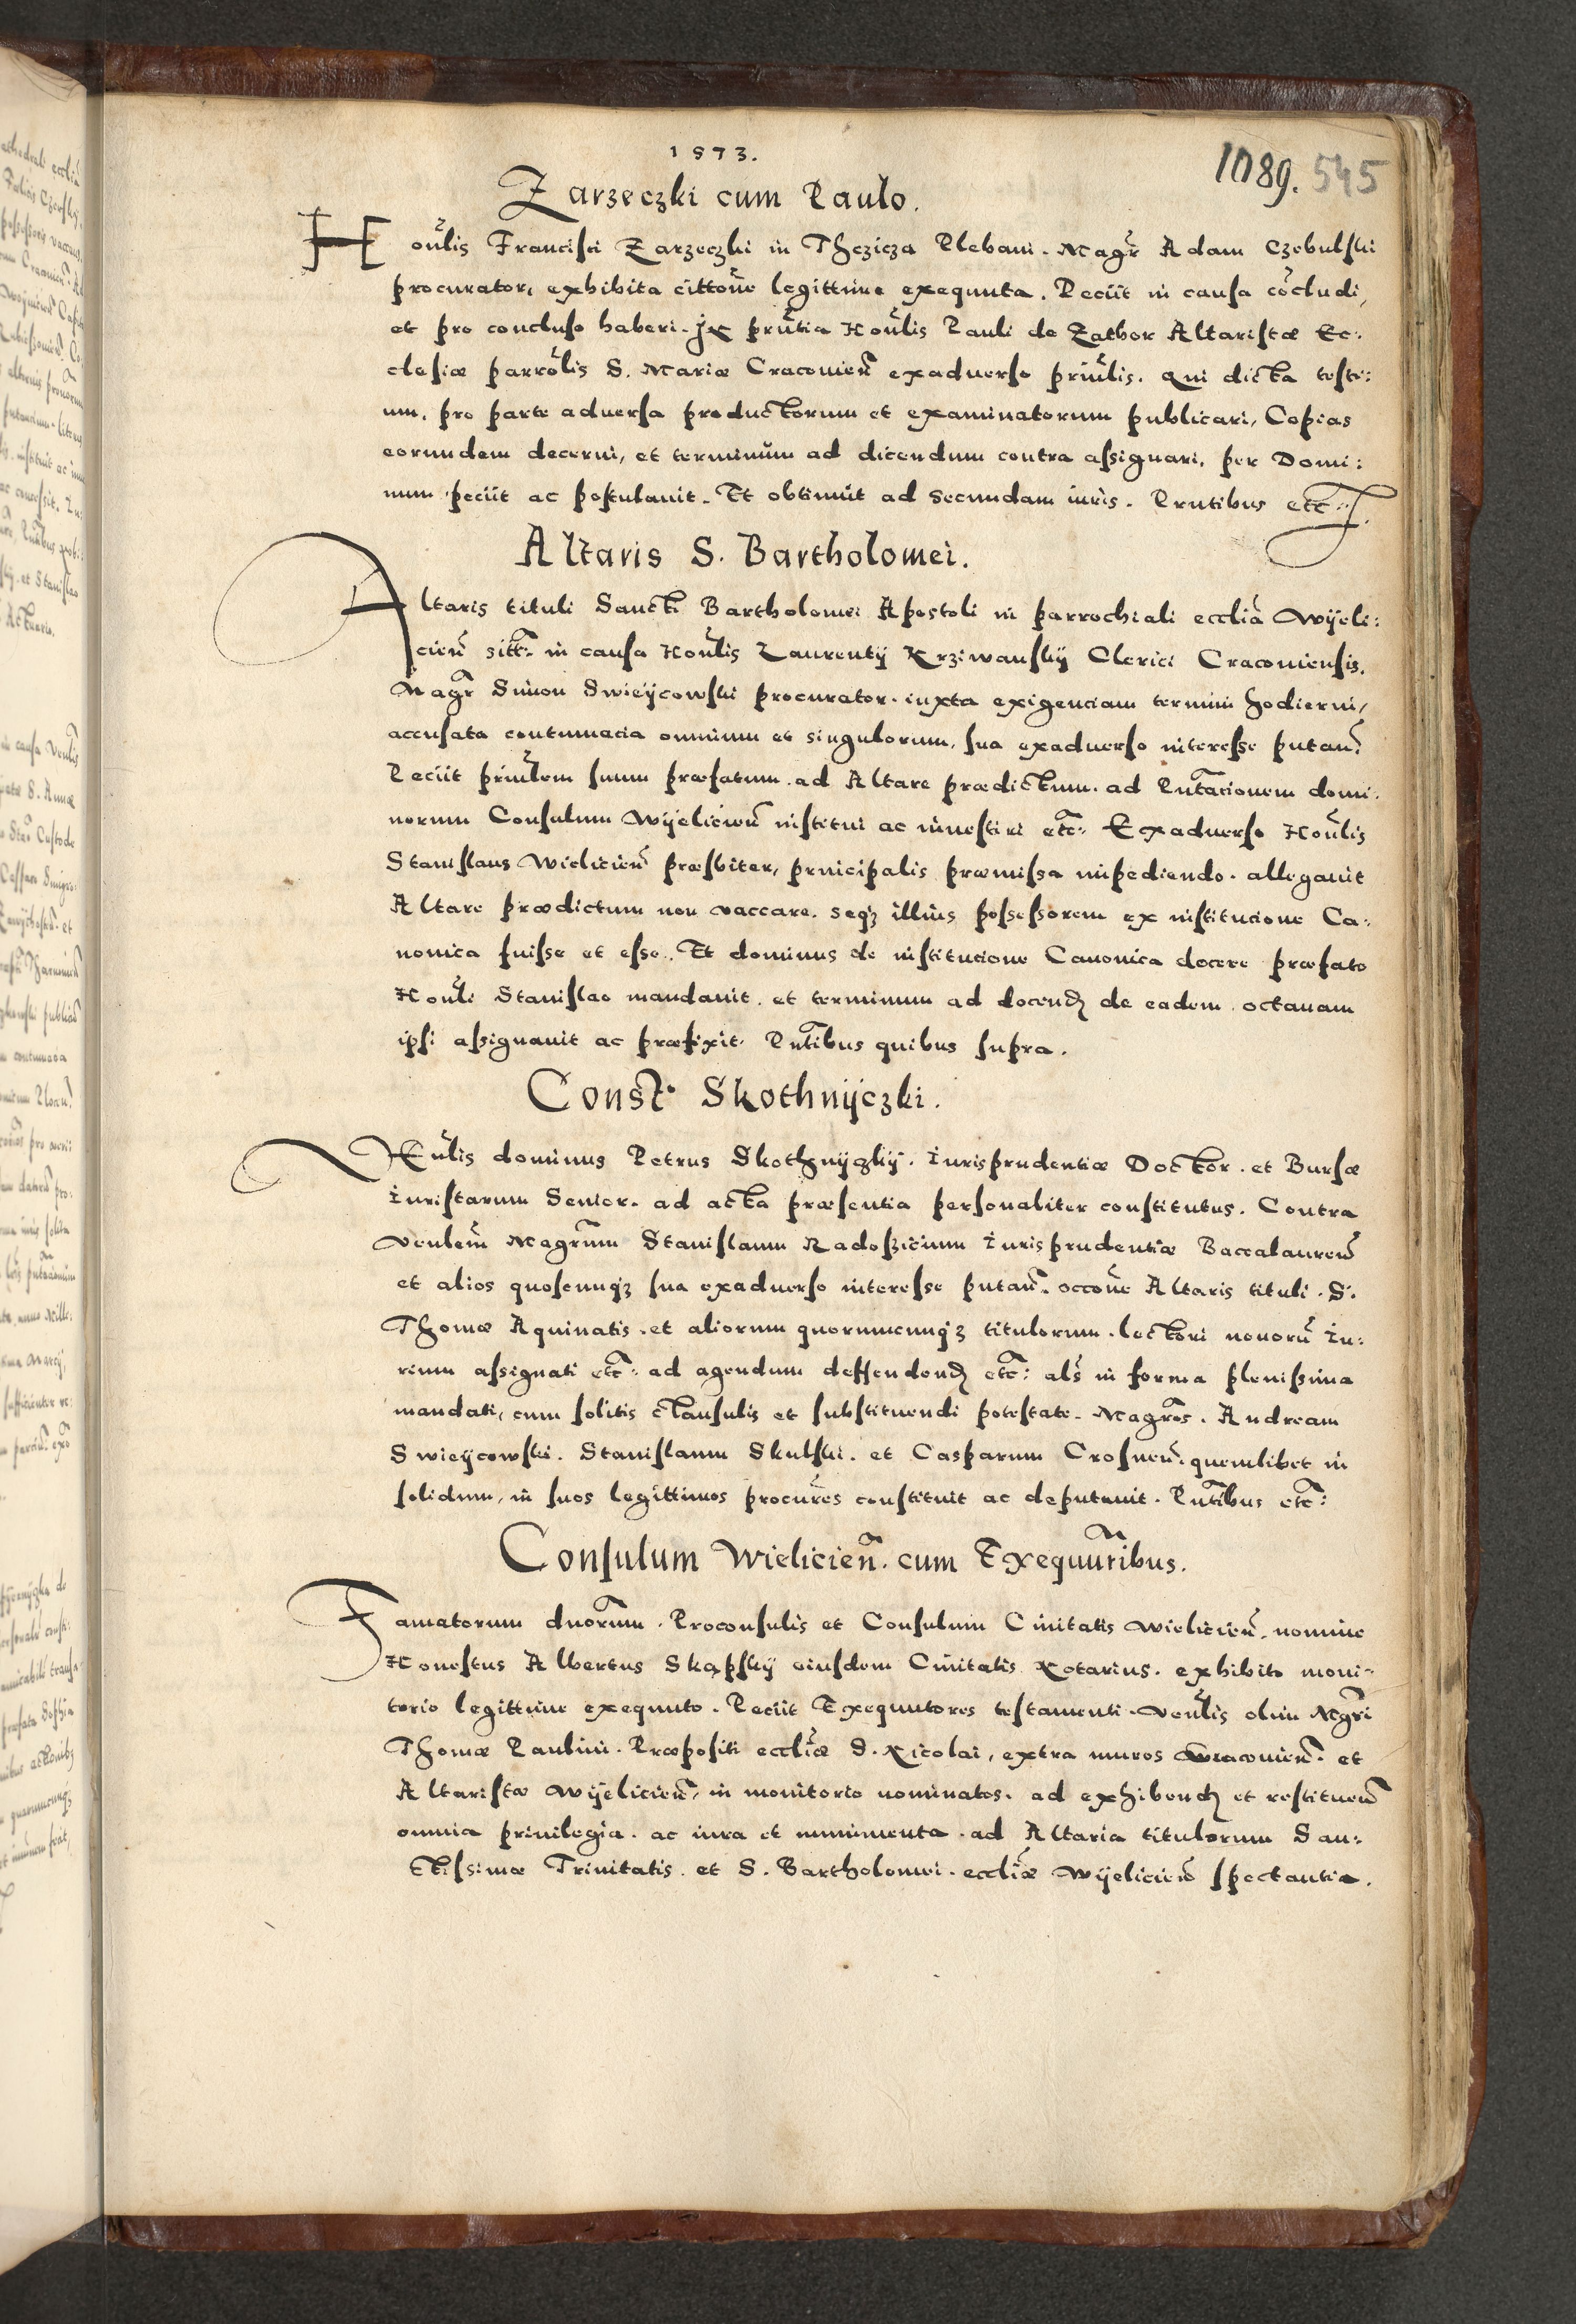 1573.
1089. 545
Zarzeczki cum Paulo.
Honlis Francisci Zarzeczki in Thczicza Plebani. Magr Adam Czebulski
procurator, exhibita cittone legittime exequuta. Peciit in causa cocludi,
et pro concluso haberi. In prutia Honlis Pauli de Zathor Altaristæ Ec:
clesiæ parrolis S. Mariæ Cracouien exaduerso prinlis. Qui dicta testi:
um, pro parte aduersa productorum et examinatorum publicari, Copias
eorundem decerni, et terminum ad dicendum contra assignari, per Domi:
num peciit ac postulauit. Et obtinuit ad secundam iuris. Prntibus etc.
Altaris S. Bartholomei.
Altaris tituli Sancti Bartholomei Apostoli in parrochiali ecclia Wyeli:
cien sitt. in causa Honlis Laurentÿ Krziwanskÿ Clerici Cracouiensis,
Magr Simon Swieÿcowski procurator. iuxta exigenciam termini hodierni,
accusata contumacia omnium et singulorum, sua exaduerso interesse putan.
Peciit prinlem suum præfatum. ad Altare prædictum. ad Pntacionem domi:
norum Consulum Wÿelicien institui ac inuestiri etc: Exaduerso Honlis
Stanislaus Wielicien præsbiter, principalis præmissa impediendo. allegauit
Altare prædictum non vaccare. seqz illius possessorem ex institucione Ca:
nonica fuisse et esse. Et dominus de institucione Canonica docere præfato
Honli Stanislao mandauit. et terminum ad docend de eadem octauam
ipsi assignauit ac præfixit. Pntibus quibus supra.
Const. Skothnÿczki.
Venlis dominus Petrus Skothnÿczkÿ. Iurisprudentiæ Doctor. et Bursæ
Iuristarum Senior. ad acta præsentia personaliter constitutus. Contra
venlem Magrum Stanislaum Radoszicium Iurisprudentiæ Baccalaureu
et alios quoscunqz sua exaduerso interesse putan. occone Altaris tituli. S.
Thomæ Aquinatis. et aliorum quorumcunqz titulorum. lectori nouoru Iu:
rium assignati etc: ad agendum deffendend etc: als in forma plenissima
mandati, cum solitis clausulis et substituendi potestate. Magros. Andream
Swieÿcowski. Stanislaum Skulski. et Casparum Crosnen. quemlibet in
solidum, in suos legittimos procures constituit ac deputauit. Pntibus etc:
Consulum Wielicien. cum Exequutribus.
Famatorum dnorum. Proconsulis et Consulum Ciuitatis Wielicien. nomine
Honestus Albertus Skąpskÿ eiusdem Ciuitatis Notarius. exhibito moni:
torio legittime exequuto. Peciit Exequutores testamenti. Venlis olim Mgri
Thomæ Paulini. Præpositi eccliæ S. Nicolai, extra muros Cracouien. et
Altaristæ Wÿelicien, in monitorio nominatos. ad exhibend et restituen
omnia priuilegia. ac iura et munimenta. ad Altaria titulorum San:
ctissimæ Trinitatis. et S. Bartholomei. eccliæ Wÿelicien spectantia.